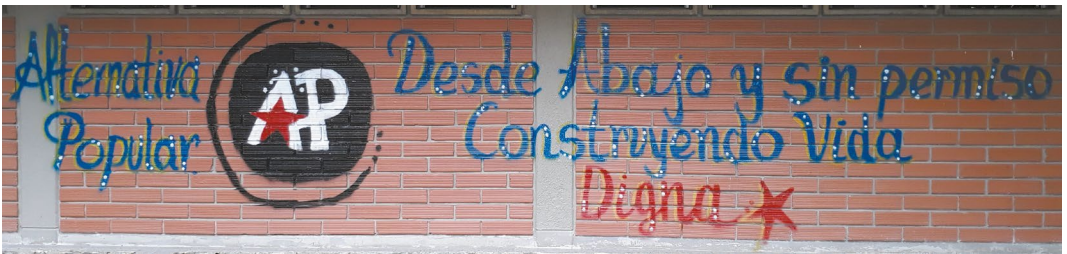 Alternativa
Popular
AP
Desde Abajo y sin permiso
Construyendo Vida
Digna